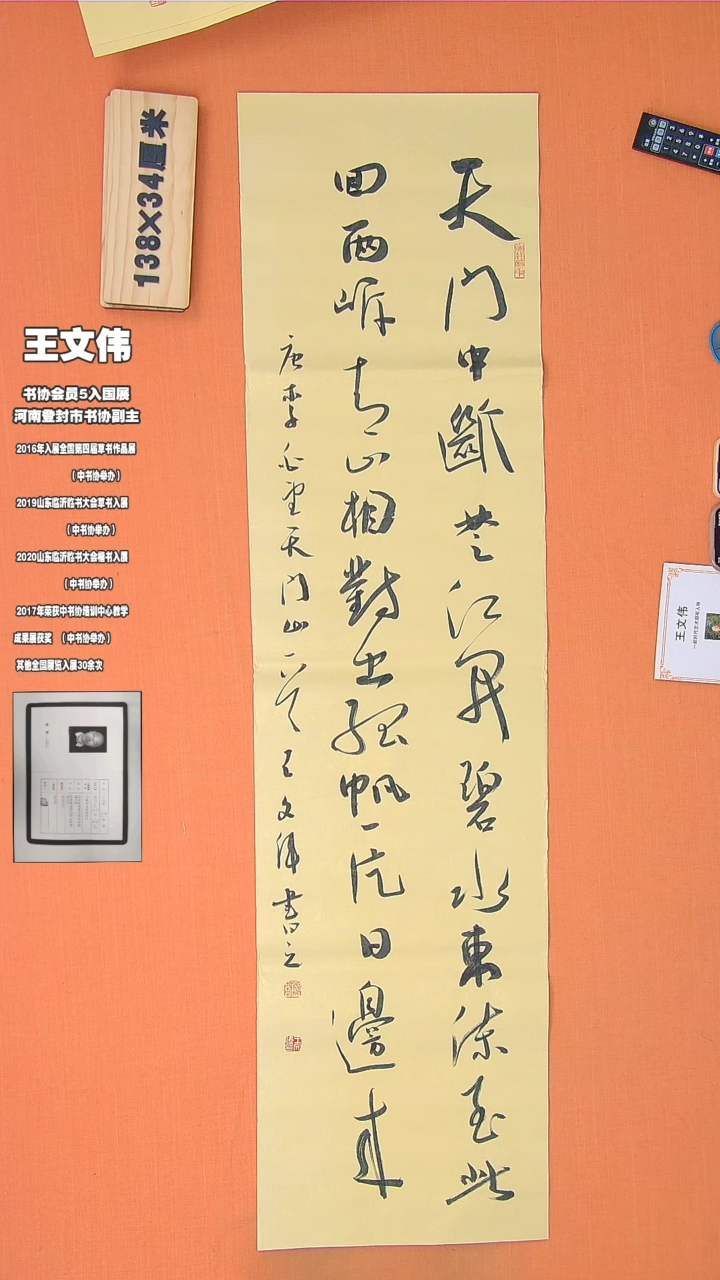 138×34厘米
王文伟
书协会员5入国展
河南登封市书协副主
2016年入展全国第四届草书作品展
（中书协举办）
2019山东临沂临书大会草书入展
（中书协举办）
2020山东临沂临书大会楷书入展
（中书协举办）
2017年荣获中书协培训中心教学
成果展获奖 （中书协举办）
其他全国展览入展30余次
天門中斷楚江開碧水東流至此
回兩岸青山相對出孤帆一片日邊來
唐李白望天門山一首 王文偉書之
王文伟